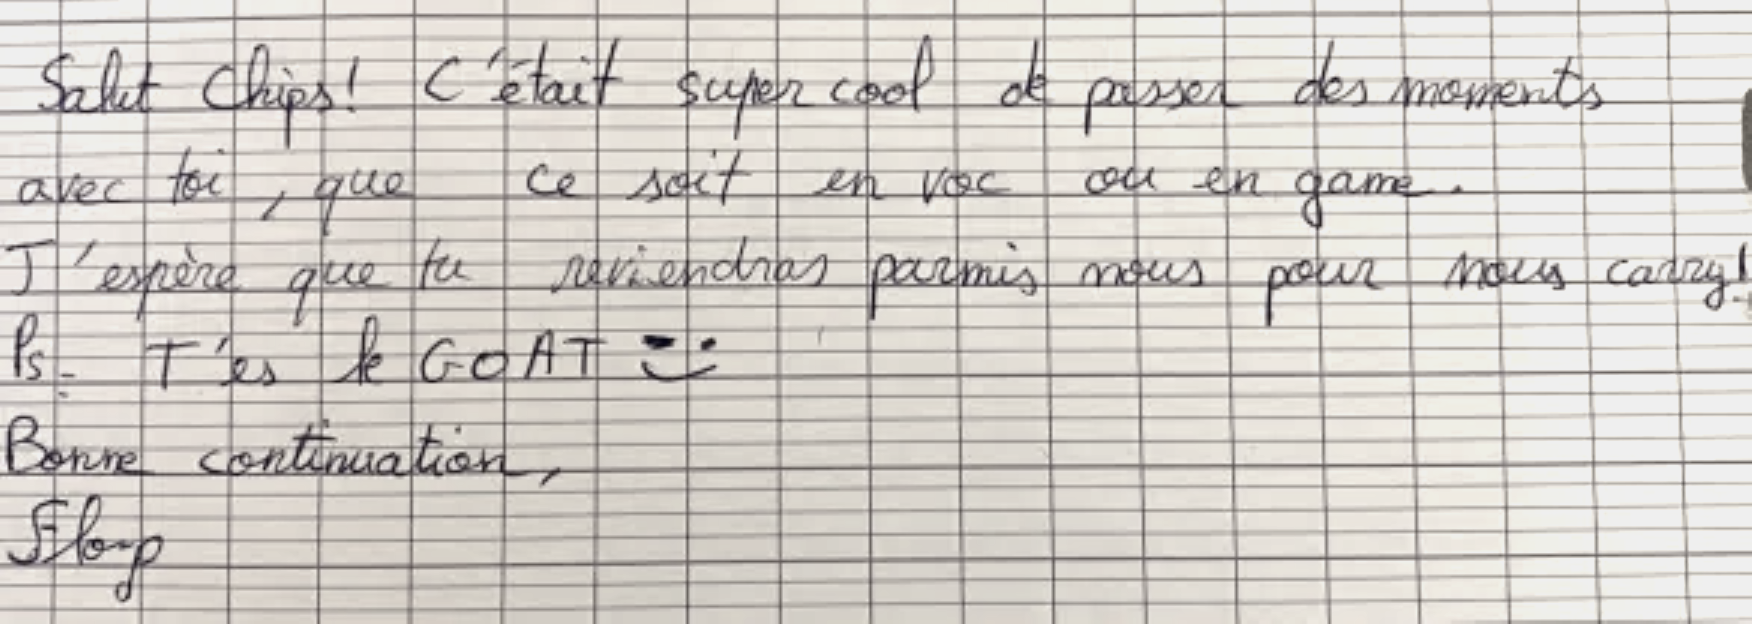 Salut Chips! C'était super cool de passer des moments
avec toi, que ce soit en voc ou en game.
J'espère que tu reviendras parmis nous pour nous carry!
Ps: T'es le GOAT :)
Bonne continuation,
Flop